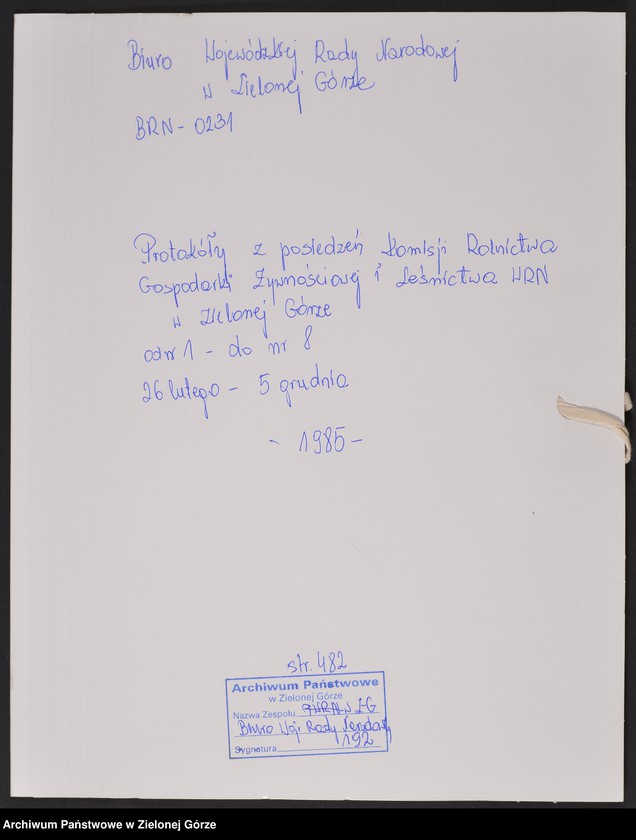 Biuro Wojewódzkiej Rady Narodowej
w Zielonej Górze
BRN - 0231
Protokóły z posiedzeń Komisji Rolnictwa
Gospodarki Żywnościowej i Leśnictwa WRN
w Zielonej Górze
od nr 1 - do nr 8
26 lutego - 5 grudnia
- 1985 -
str. 482
Archiwum Państwowe
w Zielonej Górze
Nazwa Zespołu PWRN w Z-G
Biuro Woj. Rady Narodowej
Sygnatura 192
Archiwum Państwowe w Zielonej Górze